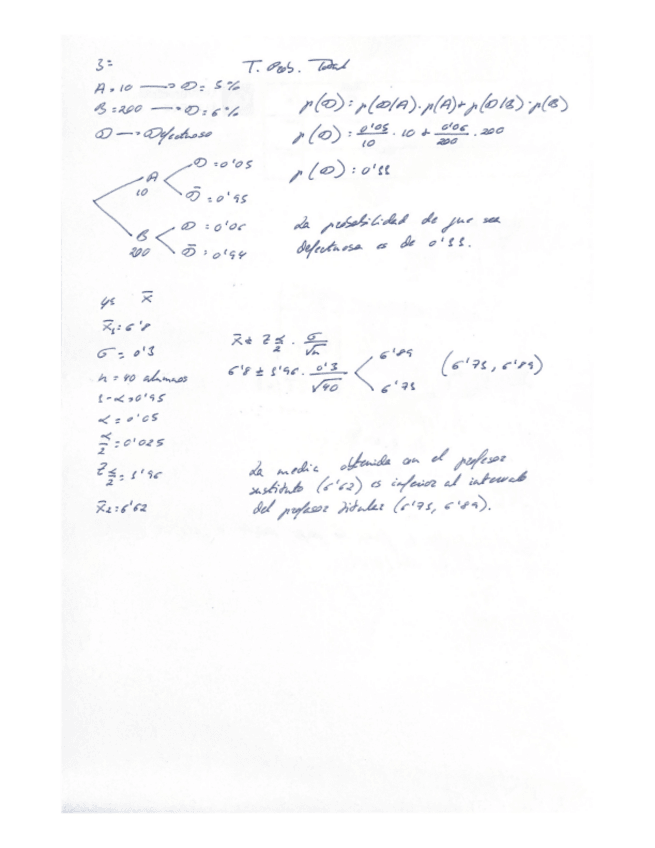 3=
T. Prob. Total
A = 10 → D = 5%
B = 200 → D = 6%
D → Defectuoso
p(D) = p(D/A)·p(A) + p(D/B)·p(B)
p(D) = 0'05/10 · 10 + 0'06/200 · 200
p(D) = 0'11
A 10
D = 0'05
D̄ = 0'95
B 200
D = 0'06
D̄ = 0'94
La probabilidad de que sea
defectuosa es de 0'11.
4= x̄
x̄₁ = 6'8
σ = 0'3
n = 40 alumnos
1-α = 0'95
α = 0'05
α/2 = 0'025
Z α/2 = 1'96
x̄₂ = 6'62
x̄ ± Z α/2 · σ/√n
6'8 ± 1'96 · 0'3/√40
6'89
6'71
(6'71, 6'89)
La media obtenida con el profesor
sustituto (6'62) es inferior al intervalo
del profesor titular (6'71, 6'89).